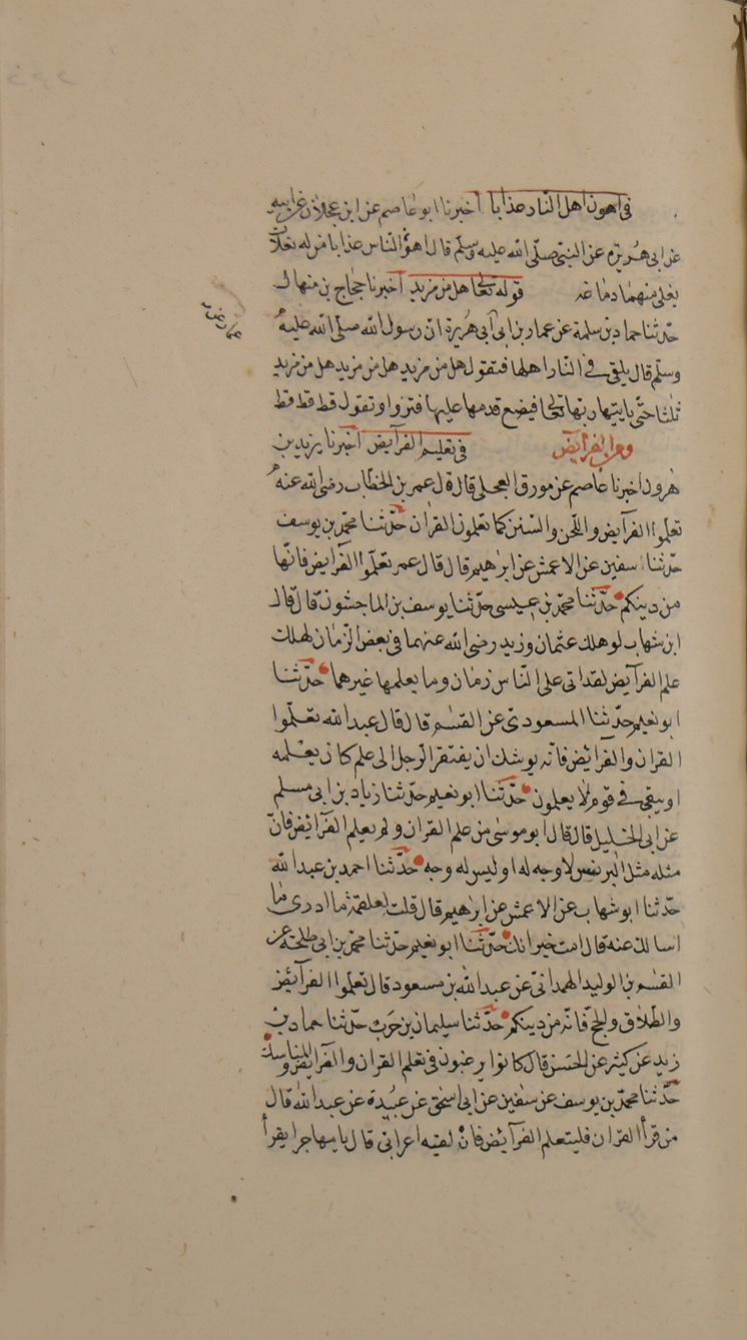 في اهون اهل النار عذابا أخبرنا ابو عاصم عن ابن عجلان عن ابيه
عن ابي هريرة عن النبي صلّى الله عليه وسلّم قال اهون الناس عذابا من له نعلان
يغلي منهما دماغه قوله تعالى هل من مزيد أخبرنا حجاج بن منهال
حدثنا حماد بن سلمة عن عمار بن ابي ابي هريرة ان رسول الله صلّى الله عليه
وسلم قال يلقى في النار اهلها فتقول هل من مزيد هل من مزيد هل من مزيد
ثلثا حتّى ياتيها ربها تعالى فيضع قدمها عليها فتزوا وتقول قط قط قط
ومن الفرائض في تعليم الفرآيض أخبرنا يزيد بن
هرون اخبرنا عاصم عن مورق العجلي قال قال عمر بن الخطاب رضى الله عنه
تعلموا الفرآيض واللحن والسّنن كما تعلمون القرأن حدّثنا محمّد بن يوسف
حدّثنا سفين عن الاعمش عن ابرهيم قال قال عمر تعلّموا الفرايض فانّها
من دينكم حدّثنا محمّد بن عيسى حدّثنا يوسف بن الماجشون قال قال
ابن شهاب لو هلك عثمان وزيد رضى الله عنهما في بعض الزّمان لهلك
علم الفرآيض لقد اتى على النّاس زمان وما يعلمها غيرهما حدّثنا
ابو نعيم حدّثنا المسعودي عن القسم قال قال عبد الله تعلّموا
القران والفرائض فانّه يوشك ان يفتقر الرّجل الى علم كان يعلمه
او يبقى في قوم لا يعلمون حدّثنا ابو نعيم حدّثنا زياد بن ابي مسلم
عن ابي الخليل قال قال ابو موسى من علم القران ولم يعلم الفرائض فانّ
مثله مثل البرنس لا وجه له او ليس له وجه حدّثنا احمد بن عبد الله
حدّثنا ابو شهاب عن الاعمش عن ابرهيم قال قلت لعلقمة ما ادرى ما
اسالك عنه قال امت خيرانك حدّثنا ابو نعيم حدّثنا محمّد بن ابي طلحة عن
القسم بن الوليد الهمدانيّ عن عبد الله بن مسعود قال تعلموا الفرآيض
والطّلاق والحجّ فانّه من دينكم حدّثنا سليمان بن حرب حدّثنا حماد بن
زيد عن كثير عن الحسن قال كانوا يرغبون في تعلم القران والفرايض والمناسك
حدّثنا محمّد بن يوسف عن سفين عن ابي اسحق عن عبيدة عن عبد الله قال
من قرأ القران فليتعلم الفرآيض فان لقيه اعرابي قال يا مهاجر ايقرأ